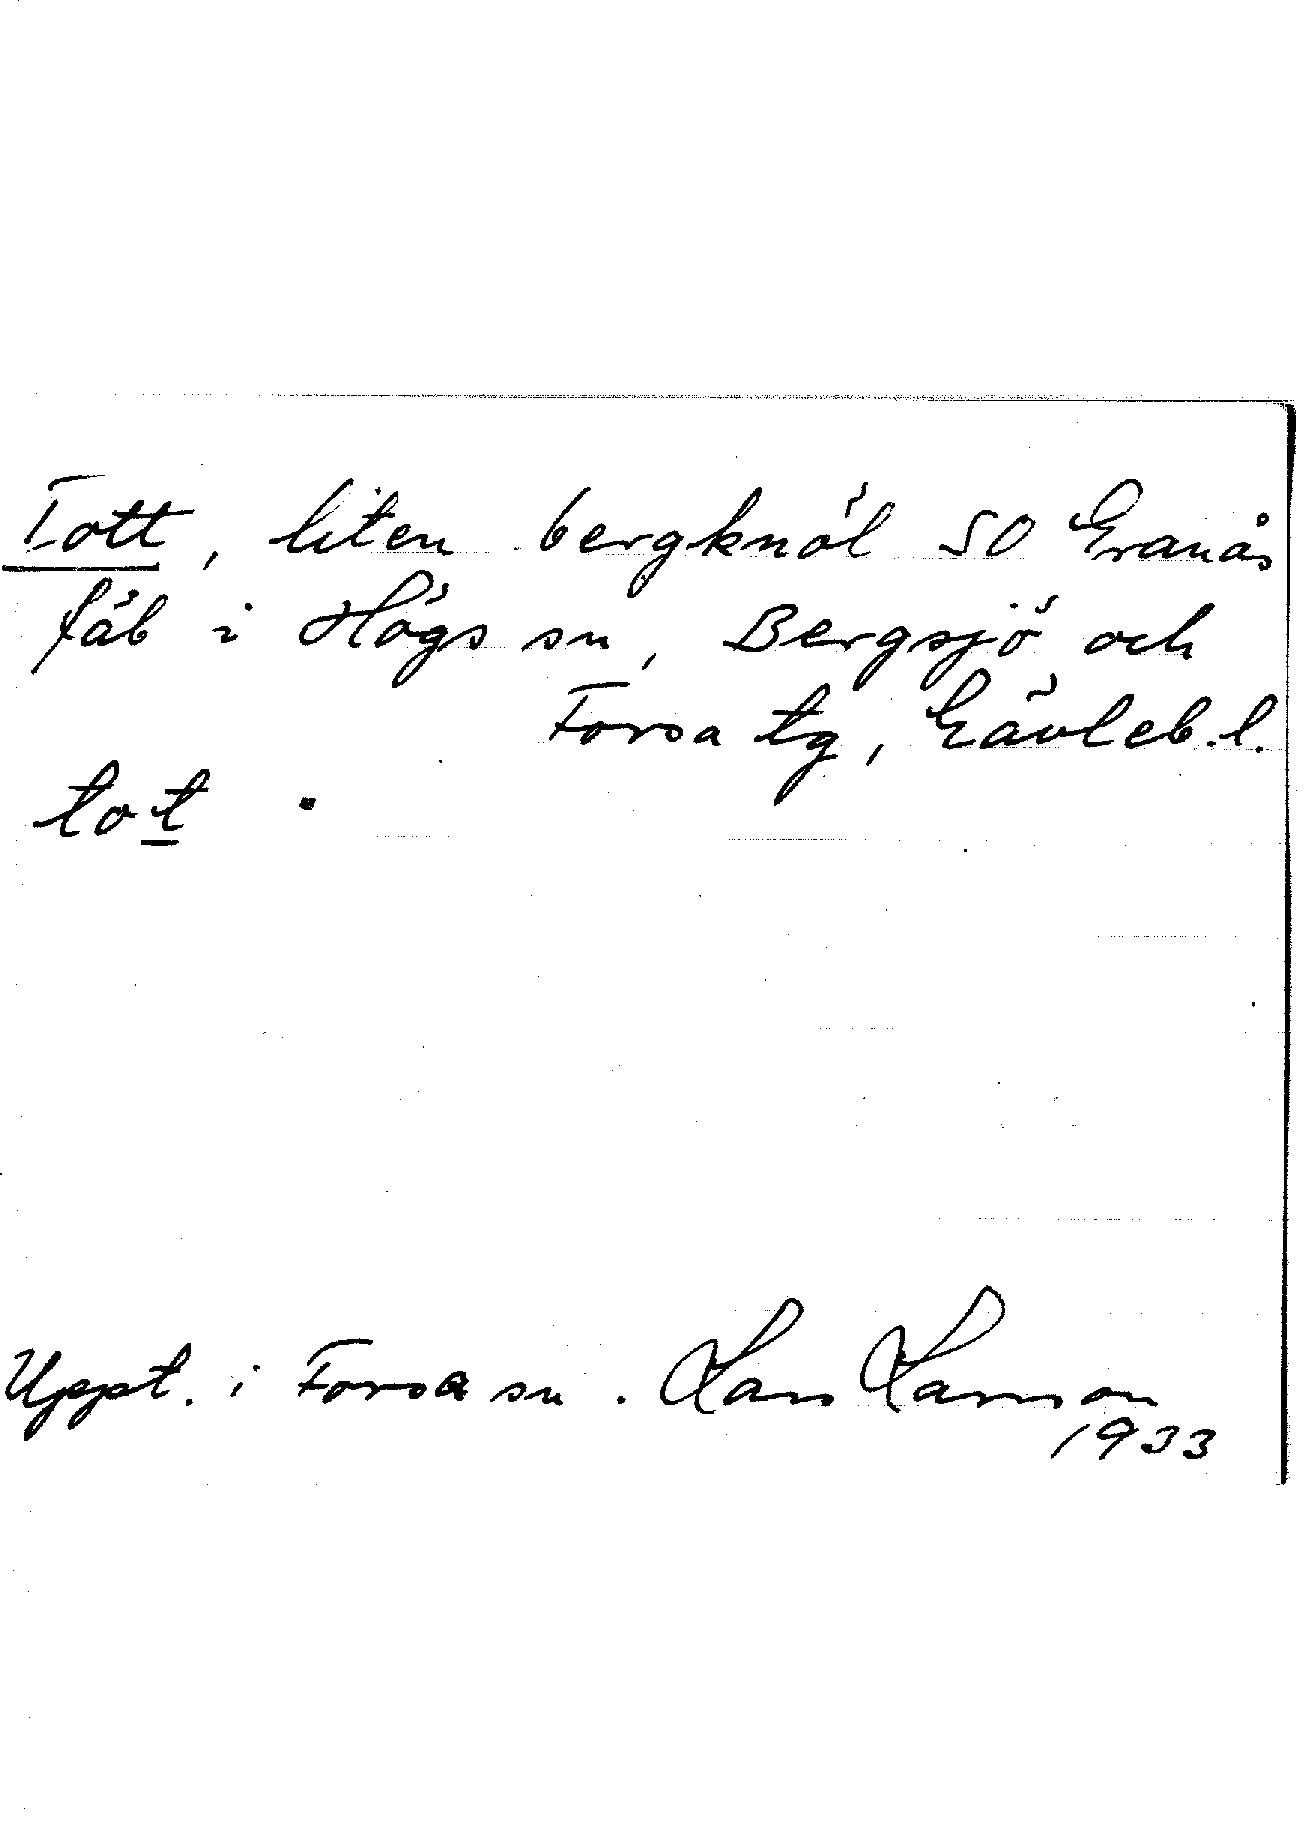 Tott, liten bergknöl SO Granås
fäb i Högs sn, Bergsjö och
Forsa tg, Gävleb.l.
tot
Uppt. i Forsa sn. Lars Larsson
1933